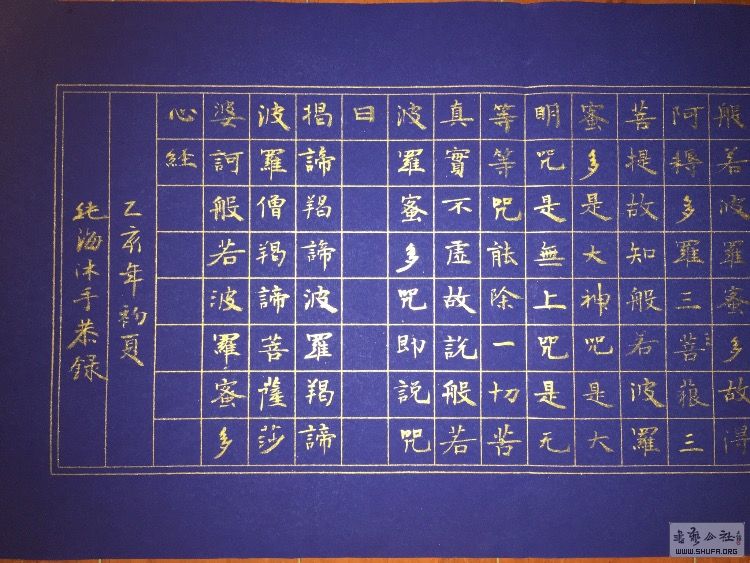 般若波羅蜜多故得
阿耨多羅三菩藐三
菩提故知般若波羅
蜜多是大神咒是大
明咒是無上咒是无
等等咒能除一切苦
真實不虛故說般若
波羅蜜多咒即說咒
曰
揭諦羯諦波羅羯諦
波羅僧羯諦菩薩莎
婆訶般若波羅蜜多
心経
乙亥年初夏
純海沐手恭録
书艺公社
WWW.SHUFA.ORG